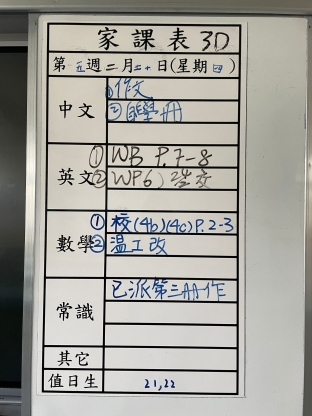 家課表 3D
第五週二月二十日(星期四)
中文 ①作文
②自學冊
英文 ① WB P.7-8
② WP6)
數學 ① 校(4b)(4c)P.2-3
② 温工改
常識 已派第三冊作
其它
值日生 21,22